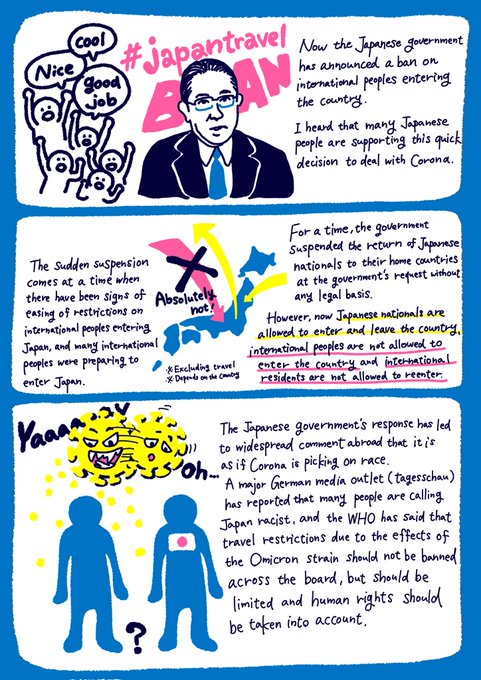 cool
Nice
good
job
#japantravel
BAN
Now the Japanese government
has announced a ban on
international peoples entering
the country.
I heard that many Japanese
people are supporting this quick
decision to deal with Corona.
The sudden suspension
comes at a time when
there have been signs of
easing of restrictions on
international peoples entering
Japan, and many international
peoples were preparing to
enter Japan.
Absolutely
not!
※Excluding travel
※Depends on the Country
For a time, the government
suspended the return of Japanese
nationals to their home countries
at the government's request without
any legal basis.
However, now Japanese nationals are
allowed to enter and leave the country,
international peoples are not allowed to
enter the country and international
residents are not allowed to reenter.
Oh...
The Japanese government's response has led
to widespread comment abroad that it is
as if Corona is picking on race.
A major German media outlet (tagesschau)
has reported that many people are calling
Japan racist, and the WHO has said that
travel restrictions due to the effects of
the Omicron strain should not be banned
across the board, but should be
limited and human rights should
be taken into account.
?